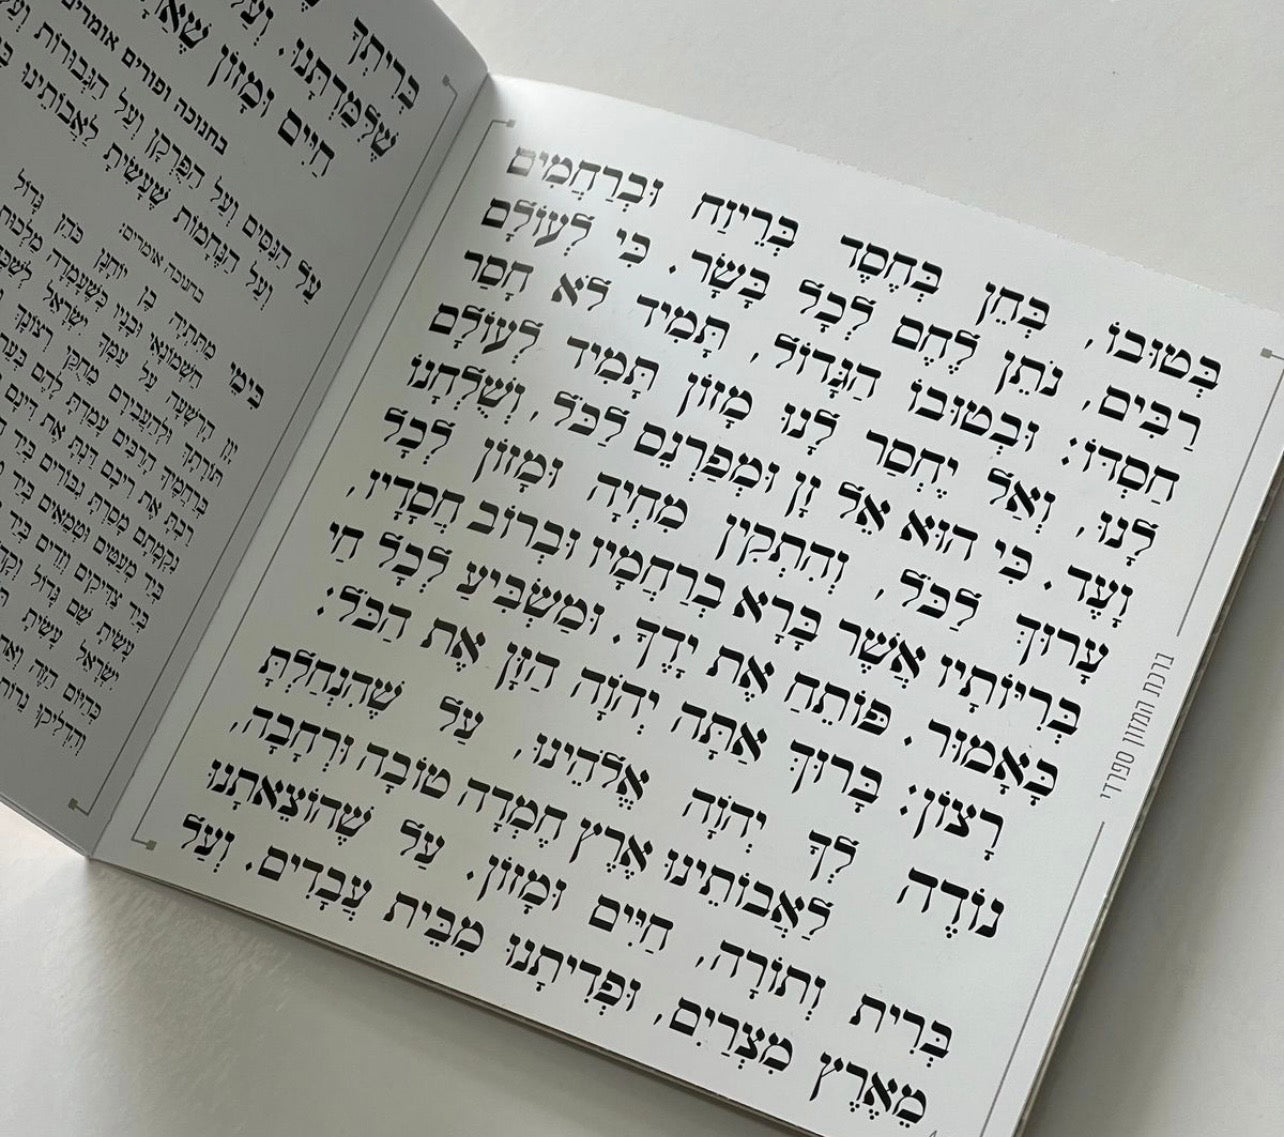 בְּטוּבוֹ, בְּחֵן בְּחֶסֶד בְּרֵיוַח וּבְרַחֲמִים
רַבִּים, נֹתֵן לֶחֶם לְכָל בָּשָׂר. כִּי לְעוֹלָם
חַסְדּוֹ: וּבְטוּבוֹ הַגָּדוֹל, תָּמִיד לֹא חָסַר
לָנוּ, וְאַל יֶחְסַר לָנוּ מָזוֹן תָּמִיד לְעוֹלָם
וָעֶד. כִּי הוּא אֵל זָן וּמְפַרְנֵס לַכֹּל, וְשֻׁלְחָנוֹ
עָרוּךְ לַכֹּל, וְהִתְקִין מִחְיָה וּמָזוֹן לְכָל
בְּרִיּוֹתָיו אֲשֶׁר בָּרָא בְרַחֲמָיו וּבְרוֹב חֲסָדָיו,
כָּאָמוּר. פּוֹתֵחַ אֶת יָדֶךָ. וּמַשְׂבִּיעַ לְכָל חַי
רָצוֹן: בָּרוּךְ אַתָּה יְהֹוָה הַזָּן אֶת הַכֹּל:
נוֹדֶה לְךָ יְהֹוָה אֱלֹהֵינוּ, עַל שֶׁהִנְחַלְתָּ
לַאֲבוֹתֵינוּ אֶרֶץ חֶמְדָה טוֹבָה וּרְחָבָה,
בְּרִית וְתוֹרָה, חַיִּים וּמָזוֹן. עַל שֶׁהוֹצֵאתָנוּ
מֵאֶרֶץ מִצְרַיִם, וּפְדִיתָנוּ מִבֵּית עֲבָדִים. וְעַל
ברכת המזון ספרדי
בְּרִיתְךָ
שֶׁלִּמַּדְתָּנוּ. וְעַל
חַיִּים וּמָזוֹן
בחנוכה ופורים אומרים
עַל הַנִּסִּים וְעַל הַפֻּרְקָן וְעַל הַגְּבוּרוֹת
וְעַל הַנֶּחָמוֹת שֶׁעָשִׂיתָ לַאֲבוֹתֵינוּ
בחנוכה אומרים:
בִּימֵי מַתִּתְיָה בֶּן יוֹחָנָן כֹּהֵן גָּדוֹל
חַשְׁמוֹנָאִי וּבָנָיו כְּשֶׁעָמְדָה מַלְכוּת
יָוָן הָרְשָׁעָה עַל עַמְּךָ יִשְׂרָאֵל
תּוֹרָתָךְ וּלְהַעֲבִירָם מֵחֻקֵּי רְצוֹנָךְ
בְּרַחֲמֶיךָ הָרַבִּים עָמַדְתָּ לָהֶם
רַבְתָּ אֶת רִיבָם דַּנְתָּ אֶת דִּינָם
נִקְמָתָם מָסַרְתָּ גִבּוֹרִים בְּיַד
בְּיַד מְעַטִּים וּטְמֵאִים בְּיַד
בְּיַד צַדִּיקִים וְזֵדִים בְּיַד
עָשִׂיתָ שֵׁם גָּדוֹל
יִשְׂרָאֵל עָשִׂיתָ
כְּהַיּוֹם הַזֶּה
וְהִדְלִיקוּ נֵרוֹת